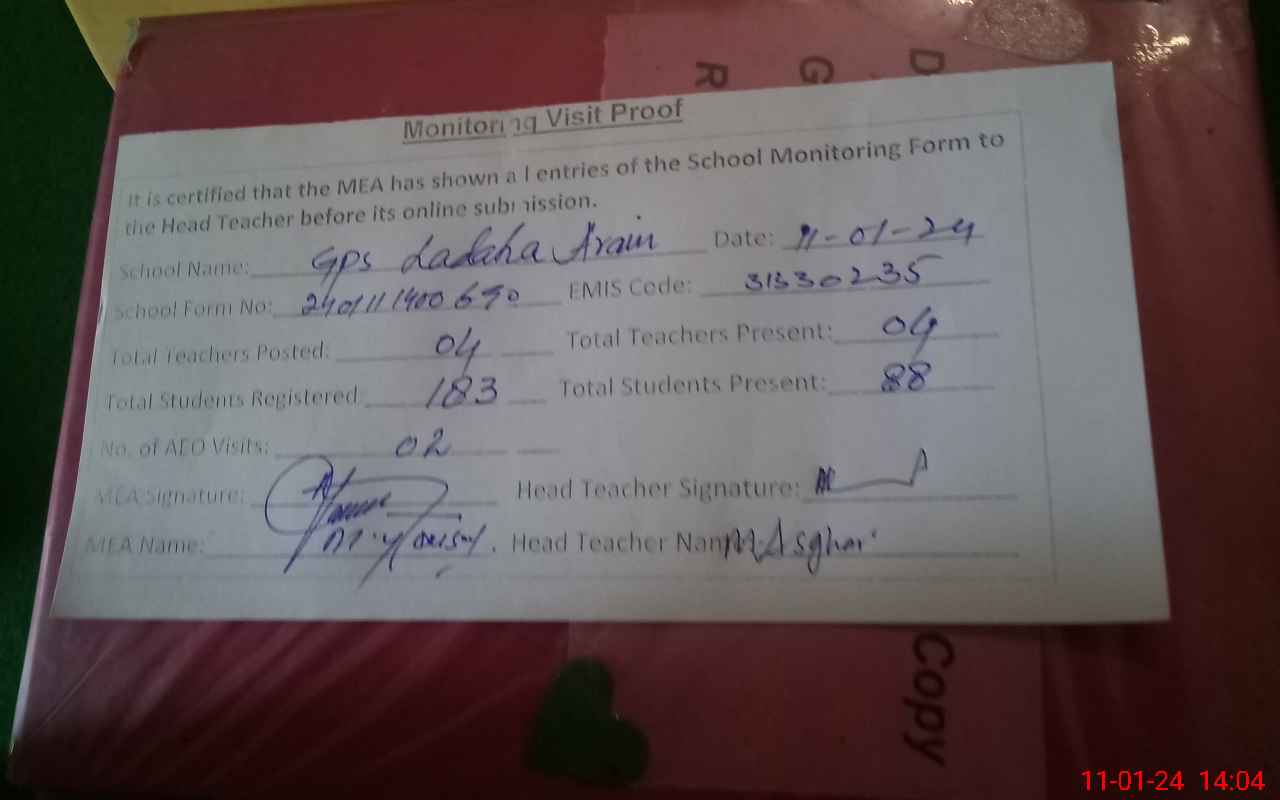 D G R
Monitoring Visit Proof
It is certified that the MEA has shown all entries of the School Monitoring Form to
the Head Teacher before its online submission.
School Name: GPS Ladaha Arain Date: 11-01-24
School Form No: 240111400690 EMIS Code: 31330235
Total Teachers Posted: 04 Total Teachers Present: 04
Total Students Registered: 183 Total Students Present: 88
No. of AEO Visits: 02
MEA Signature: Head Teacher Signature:
MEA Name: Head Teacher Name: M.Asghar
Copy
11-01-24 14:04